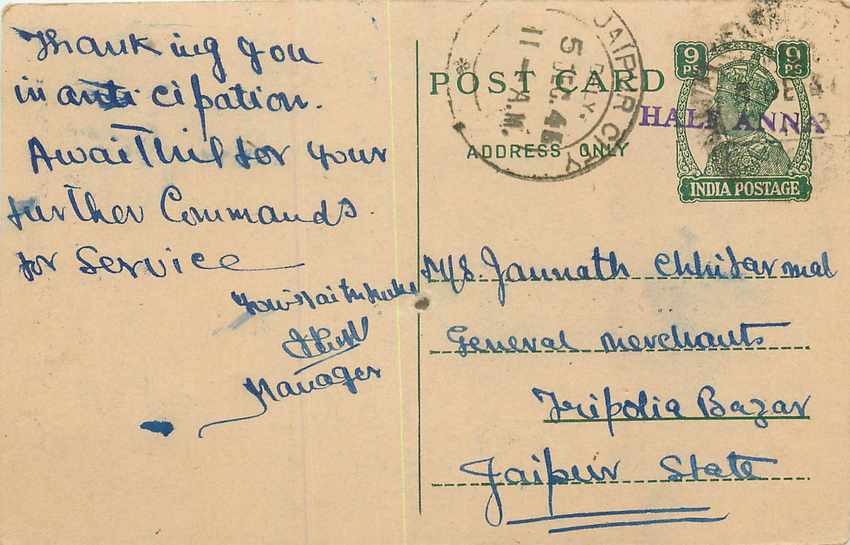 Thanking you
in anticipation.
Await Thil for your
further Commands
for Service
Manager
POST CARD
ADDRESS ONLY
JAIPUR CITY
5 DEC. 46
11 - A.M.
9 PS
9 PS
HALF ANNA
INDIA POSTAGE
M/S. Jannath Chhitarmal
General merchants
Tripolia Bazar
Jaipur State